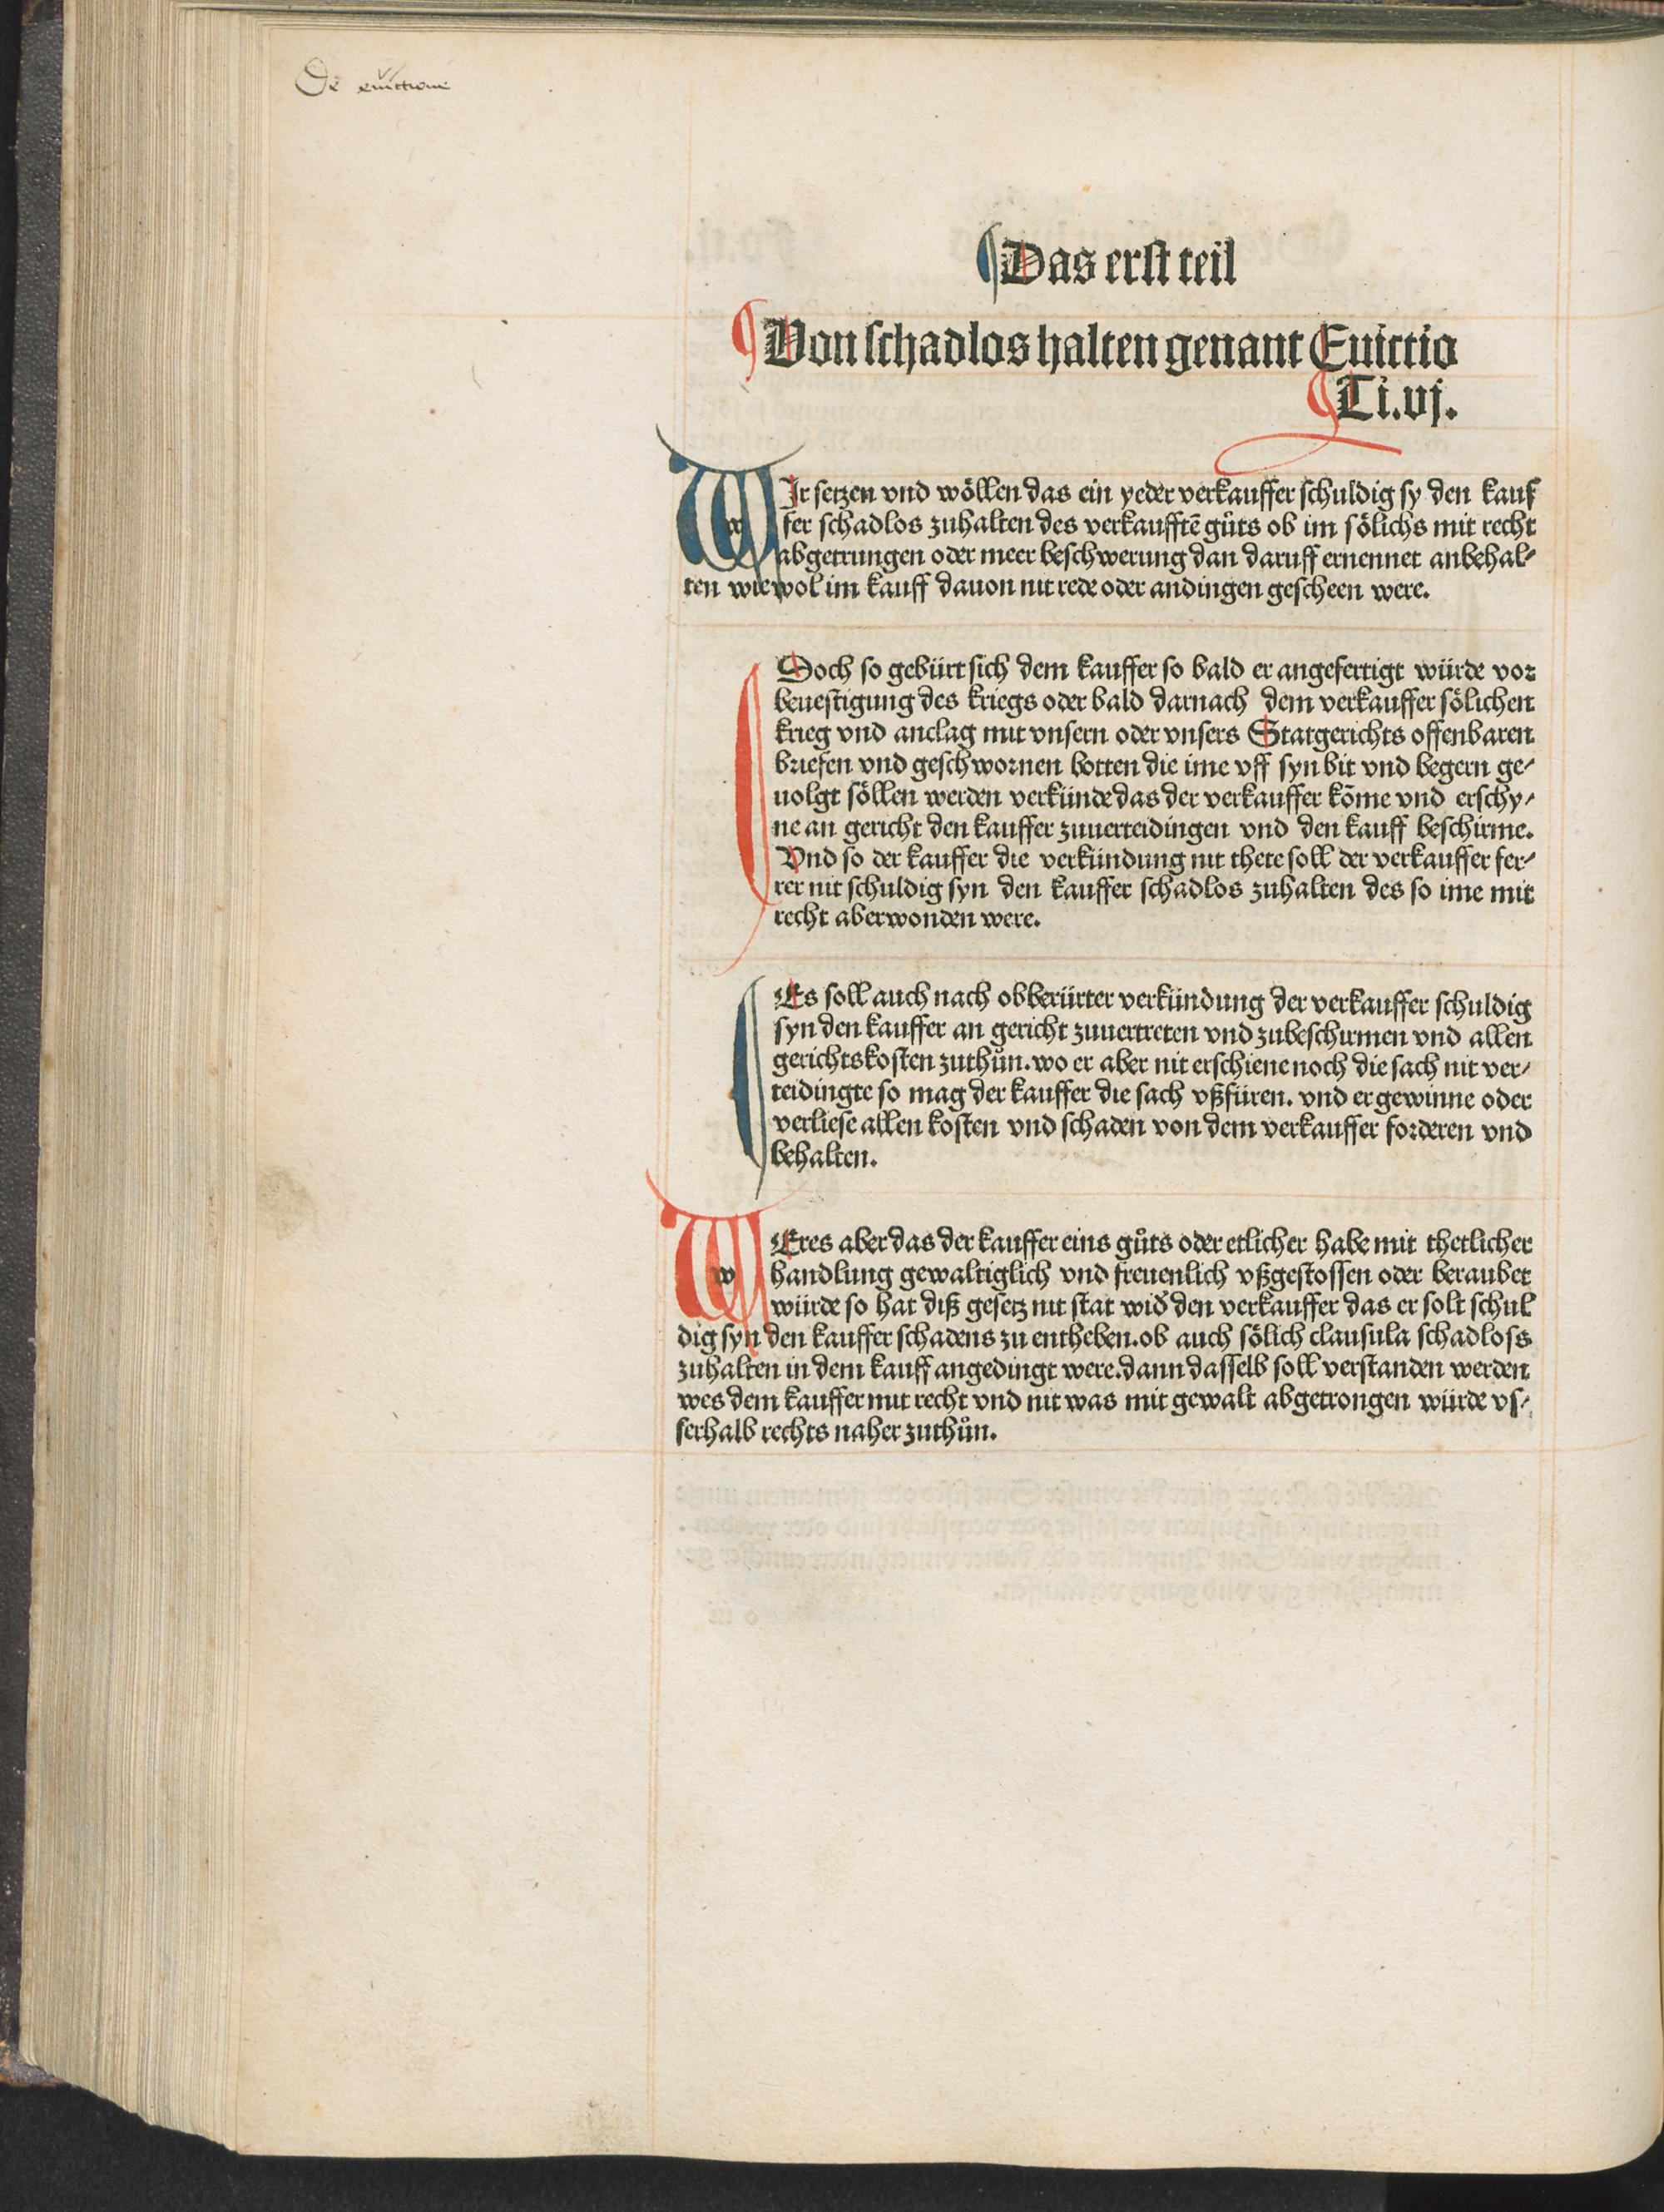 De euictione
Das erst teil
Von schadlos halten genant Euictio
Ti.vj.
WIr setzen vnd wöllen das ein yeder verkauffer schuldig sy den kauf
fer schadlos zuhalten des verkaufftē gůts ob im sölichs mit recht
abgetrungen oder meer beschwerung dan daruff ernennet anbehal⸗
ten wiewol im kauff dauon nit rede oder andingen gescheen were.
Doch so gebürt sich dem kauffer so bald er angefertigt würde vor
beuestigung des kriegs oder bald darnach dem verkauffer sölichen
krieg vnd anclag mit vnsern oder vnsers Statgerichts offenbaren
briefen vnd geschwornen botten die ime vff syn bit vnd begern ge⸗
uolgt söllen werden verkünde das der verkauffer kōme vnd erschy⸗
ne an gericht den kauffer zuuerteidingen vnd den kauff beschirme.
Vnd so der kauffer die verkündung nit thete soll der verkauffer fer⸗
rer nit schuldig syn den kauffer schadlos zuhalten des so ime mit
recht aberwonden were.
Es soll auch nach obberürter verkündung der verkauffer schuldig
syn den kauffer an gericht zuuertreten vnd zubeschirmen vnd allen
gerichtskosten zuthůn. wo er aber nit erschiene noch die sach nit ver⸗
teidingte so mag der kauffer die sach vßfüren. vnd er gewinne oder
verliese allen kosten vnd schaden von dem verkauffer forderen vnd
behalten.
WEres aber das der kauffer eins gůts oder etlicher habe mit thetlicher
handlung gewaltiglich vnd freuenlich vßgestossen oder beraubet
würde so hat diß gesetz nit stat wid̕ den verkauffer das er solt schul
dig syn den kauffer schadens zu entheben. ob auch sölich clausula schadloss
zuhalten in dem kauff angedingt were. dann dasselb soll verstanden werden
wes dem kauffer mit recht vnd nit was mit gewalt abgetrongen würde vs⸗
serhalb rechts naher zuthůn.